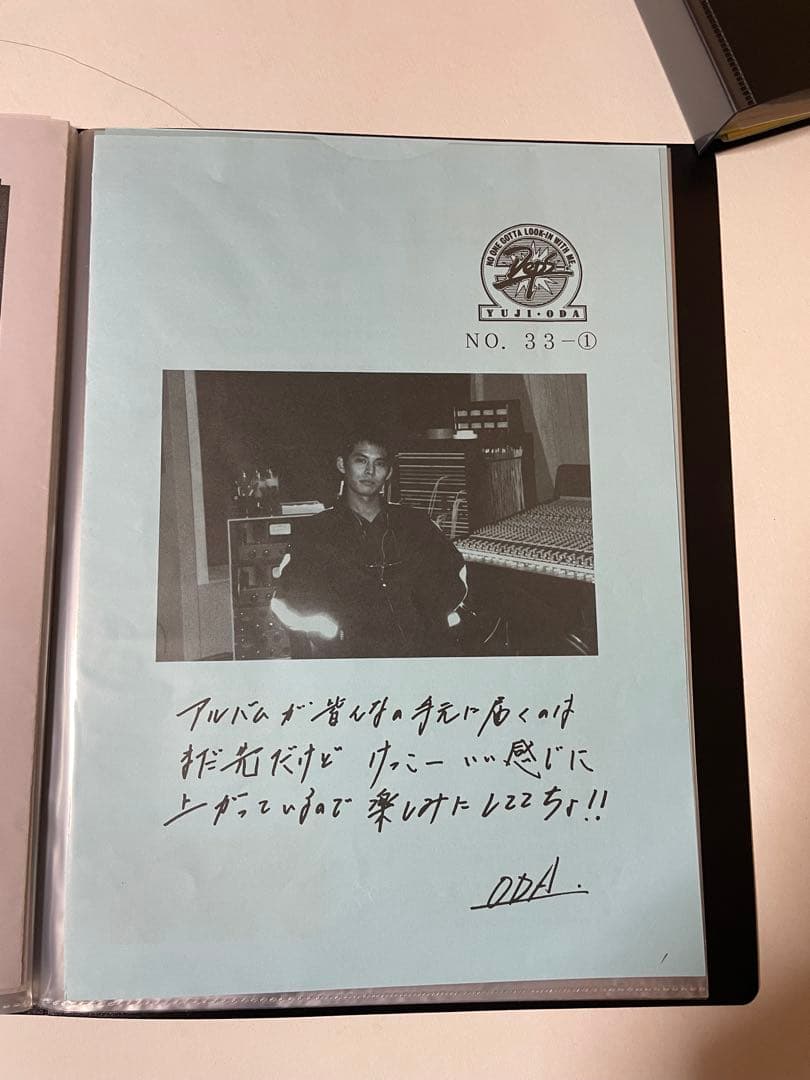 NO ONE GOTTA LOOK-IN WITH ME.
YUJI・ODA
NO. 33-①
アルバムが皆んなの手元に届くのは
まだ先だけど けっこーいい感じに
上がっているので楽しみにしててちょ!!
ODA.